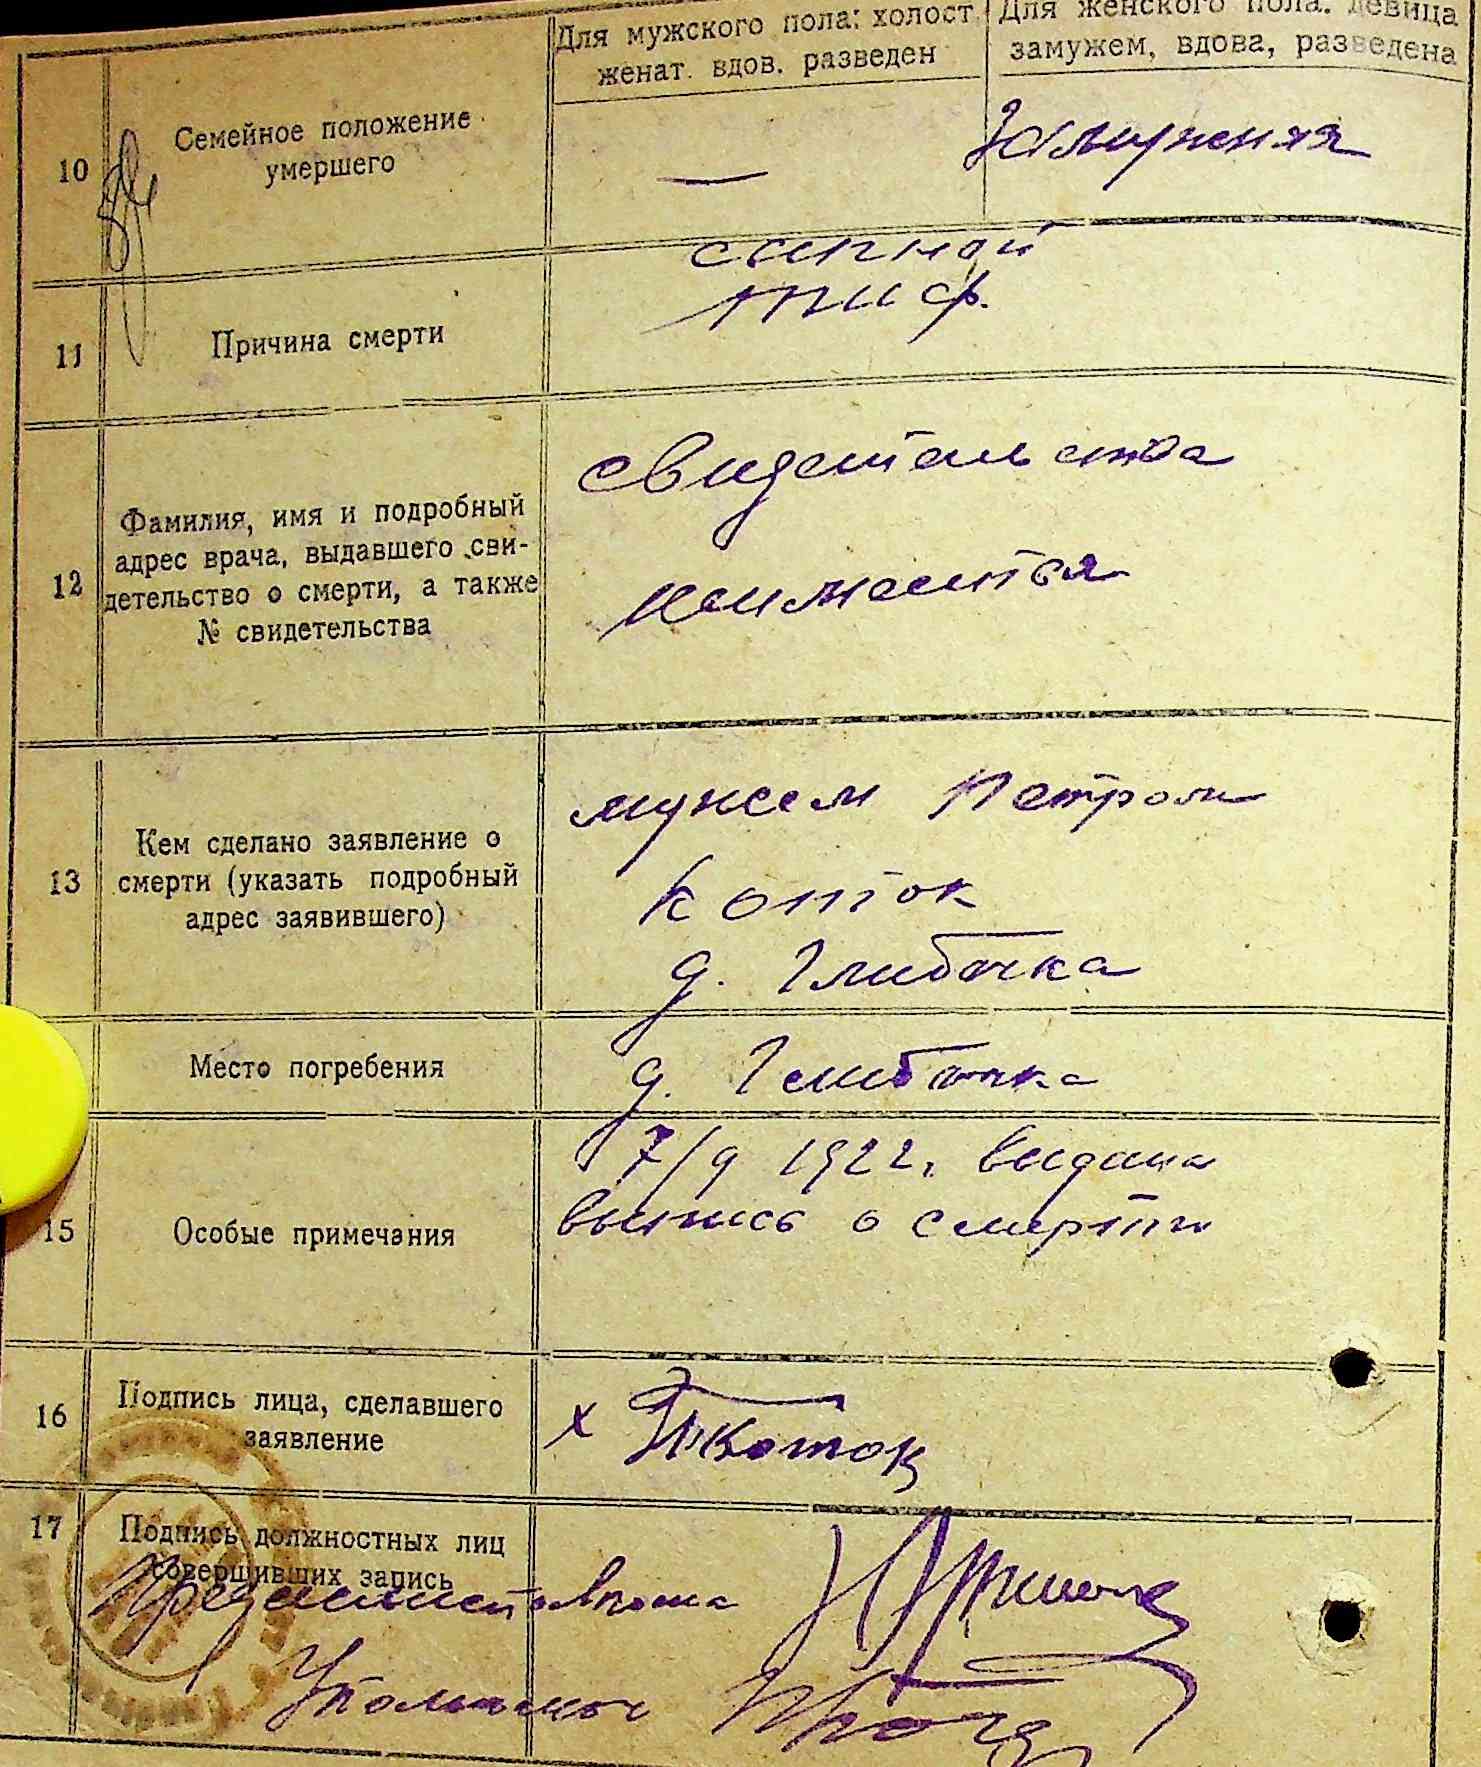 Для мужского пола: холост
женат. вдов. разведен
Для женского пола: девица
замужем, вдова, разведена
10
Семейное положение
умершего
—
Замужняя
11
Причина смерти
сипной
тиф.
12
Фамилия, имя и подробный
адрес врача, выдавшего сви-
детельство о смерти, а также
№ свидетельства
свидетельства
неимеется
13
Кем сделано заявление о
смерти (указать подробный
адрес заявившего)
мужем Петром
Коток
д. Глибочка
Место погребения
д. Глибочка
15
Особые примечания
7/9 1922 г. выдана
выпись о смерти
16
Подпись лица, сделавшего
заявление
х П Коток
17
Подпись должностных лиц
совершивших запись